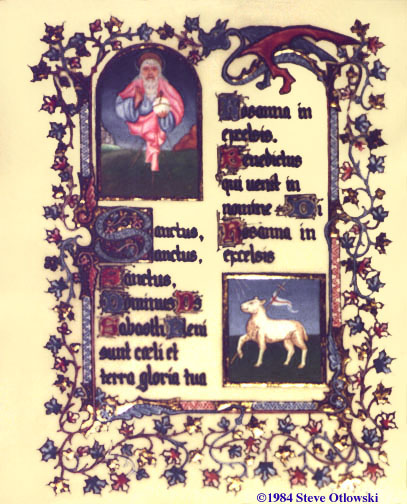 Sanctus,
Sanctus,
Sanctus,
Dominus Ds
Sabaoth Pleni
sunt cæli et
terra gloria tua
Hosanna in
excelsis.
Benedictus
qui uenit in
nomine Di
Hosanna in
excelsis
©1984 Steve Otlowski